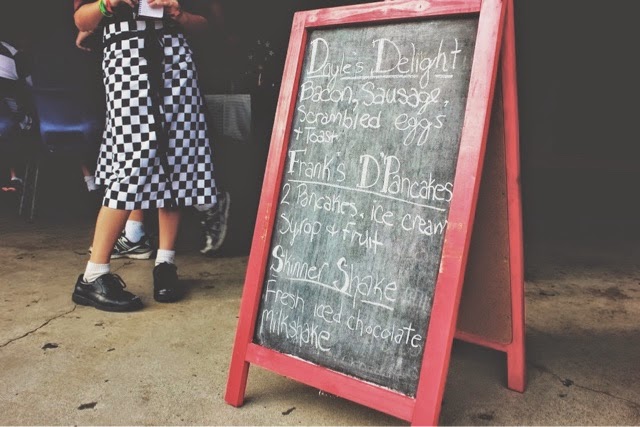 Doyle's Delight
Bacon, Sausage,
Scrambled eggs
+ Toast
Frank's D'Pancakes
2 Pancakes, ice cream
Syrup + fruit
Skinner Shake
Fresh iced chocolate
Milkshake